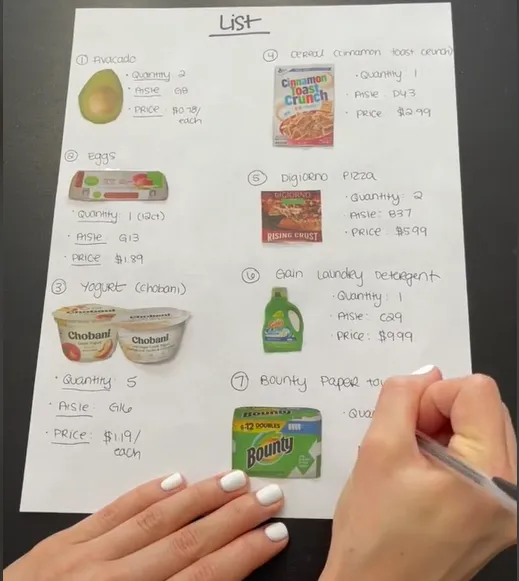 List
① Avacado
· Quantity: 2
· Aisle: G8
· Price: $0.78/
each
② Eggs
· Quantity 1 (12ct)
· Aisle: G13
· Price: $1.89
③ Yogurt (chobani)
Chobani
Chobani
· Quantity 5
· Aisle: G16
· Price: $1.19/
each
④ Cereal (cinnamon toast crunch)
Cinnamon
Toast
Crunch
· Quantity: 1
· Aisle: D43
· Price $2.99
⑤ Digiorno Pizza
DIGIORNO
RISING CRUST
· Quantity: 2
· Aisle: B37
· Price: $5.99
⑥ Gain Laundry Detergent
· Quantity: 1
· Aisle: C29
· Price: $9.99
⑦ Bounty Paper
Bounty
6=12 DOUBLES
Bounty